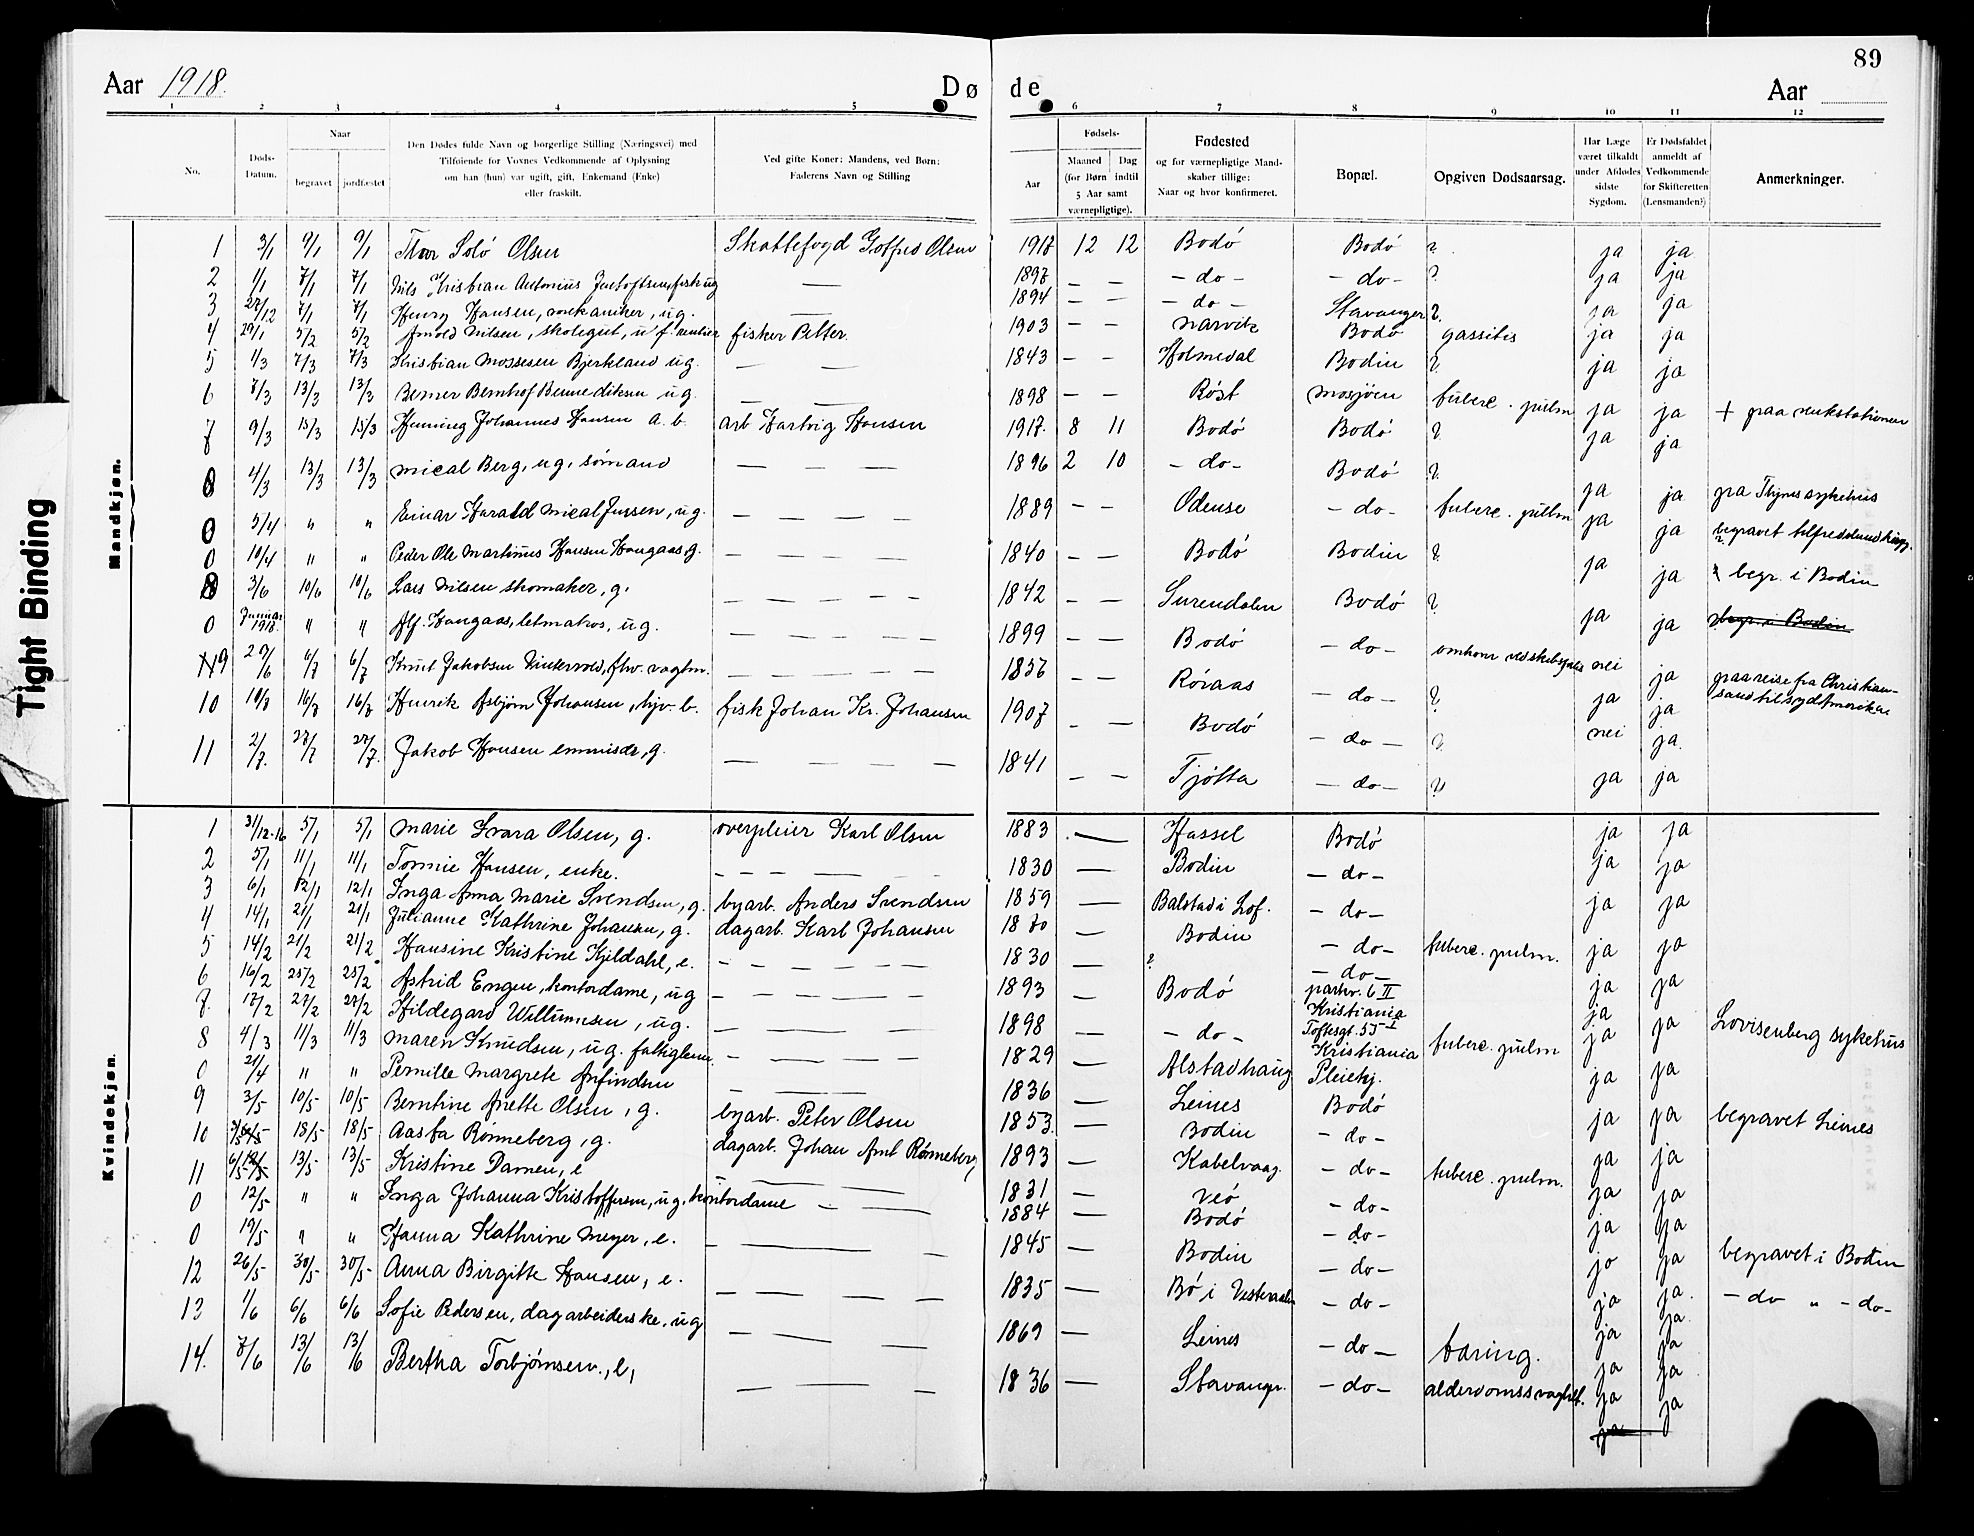 89
Aar 1918. Dø de Aar
1 2 3 4 5 6 7 8 9 10 11 12
No. Døds-Datum. Naar begravet jordfæstet Den Dødes fulde Navn og borgerlige Stilling (Næringsvei) med Tilføiende for Voxnes Vedkommende af Oplysning om han (hun) var ugift, gift, Enkemand (Enke) eller fraskilt. Ved gifte Koner: Mandens, ved Børn: Faderens Navn og Stilling Aar Fødsels- Maaned Dag (for Børn indtil 5 Aar samt værnepligtige). Fødested og for værnepligtige Mandskaber tillige: Naar og hvor konfirmeret. Bopæl. Opgiven Dødsaarsag. Har Læge været tilkaldt under Afdødes sidste Sygdom. Er Dødsfaldet anmeldt af Vedkommende for Skifteretten (Lensmanden?) Anmerkninger.
Mandkjøn.
1 3/1 9/1 9/1 Thor Solö Olsen Skattefogd Gotfred Olsen 1917 12 12 Bodö Bodö ? ja ja
2 1/1 7/1 7/1 Nils Kristian Antonius fisk ug — 1897 — — — do — — do — ? ja ja
3 27/12 7/1 7/1 Henry Hansen, mekaniker, ug. — 1894 — — — do — Stavanger ? ja ja
4 29/1 5/2 5/2 Arnold Nilsen, skolegut, u f. fisker Petter. 1903 — — Narvik Bodö gassitis ja ja
5 1/3 7/3 7/3 Kristian Mossesen Bjerkland ug. — — 1843 — — Holmedal Bodin ? ja ja
6 7/3 13/3 13/3 Berner Bernhof Bennediksen ug. — — 1898 — — Röst Mosjöen tuberc. pulm ja ja + paa
7 9/3 15/3 15/3 Henning Johannes Hansen a. b. arb Hartvig Hansen 1917. 8 11 Bodö Bodö ? ja ja
8 4/3 13/3 13/3 Mical Berg, ug, sömand — — — 1896 2 10 — do — Bodö ? ja ja paa Thjnes sykehus
0 5/4 " " Einar Harald Mical Jussen, ug. — — — — 1889 — — Odense — do — tuberc. pulm ja ja begravet
0 10/4 " " Peder Ole Martinus Hansen Haugaas, g. — — — — 1840 — — Bodö Bodin ? ja ja begr. i Bodin
8 3/6 10/6 10/6 Lars Nilsen skomaker, g. — — — — — 1842 — — Surendalen Bodö ? ja ja begr. i Bodin
0 Januar 1918. " " Alf. Haugaas, letmatros, ug. — — — — 1899 — — Bodö — do — omkom ved skibsforlis nei ja paa reise fra Christiansand til sydAmerika
9 29/6 6/7 6/7 Knut Jakobsen fhv. vagtm. — — — — 1857 — — Röraas — do — ? ja ja
10 10/7 16/7 16/7 Henrik Asbjörn Johansen, hjv. b. fisk Johan Kr. Johansen 1907 — — Bodö — do — ? nei ja.
11 2/7. 27/7 27/7. Jakob Hansen emmisær, g. — — — — 1841 — — Tjötta — do — ? ja ja
Kvindekjøn.
1 31/12-16 5/1 5/1 Marie Svara Olsen, g. overpleier Karl Olsen 1883 — Hassel Bodö ja ja
2 5/1 11/1 11/1 Tomine Hansen, enke. — — — — — 1830 — Bodin — do — ja ja
3 6/1 12/1 12/1 Inga Anna Marie Svendsen, g. byarb. Anders Svendsen 1859 — Balstad i Lof. — do — ja ja
4 14/1 21/1 21/1 Julianne Kathrine Johansen, g. dagarb. Karl Johansen 1870 — Bodin — do — tuberc. pulm. ja ja
5 14/2 21/2 21/2 Hansine Kristine Kjeldahl, e. — — — — — 1830 — ? — do — ja ja
6 16/2 25/2 25/2 Astrid Engen, kontordame, ug — — — — — 1893 — Bodö parkv. 6 II Kristiania ja ja Lovisenberg sykehus
7. 17/2 27/2 27/2 Hildegard Willumsen, ug. — — — — 1898 — — do — Toftesgt. 55 I Kristiania tuberc. pulm ja ja
8 4/3 11/3 11/3 Maren Knudsen, ug. fattiglem. — — — — 1829 — Alstadhaug Pleiehj. ja ja
0 21/4 " " Pernille Margrete Arfindsen — — — 1836 — Leines Bodö ja ja begravet Leines
9 3/5 10/5 10/5 Berntine Anette Olsen, g. byarb. Peter Olsen 1853. — Bodin — do — ja ja
10 18/5 18/5 Aasta Rönneberg, g. dagarb. Johan Arnt Rönneberg 1893 — Kabelvaag. — do — tuberc. pulm. ja ja
11 6/5 13/5 13/5 Kristine Damen, e — — — — 1831 — Veö — do — ja ja
0 12/5 " " Inga Johanna Kristoffersen, ug. kontordame — — 1884 — Bodö — do — ja ja begravet i Bodin
0 19/5 " " Hanna Kathrine Meyer, e. — — — — 1845 — Bodin — do — ja ja. — do " — do —
12 26/5 30/5 30/5 Anna Birgitte Hansen, e. — — — — — 1835 — Bö i Vesteraalen — do — ja ja
13 1/6 6/6 6/6 Sofie Pedersen, dagarbeiderske, ug — — — — 1869 — Leines — do — tæring. ja ja
14. 7/6 13/6 13/6 Bertha Torbjørnsen., e, — — — — 1836 — Stavanger. — do — alderdomssvaghet. ja ja
Tight Binding